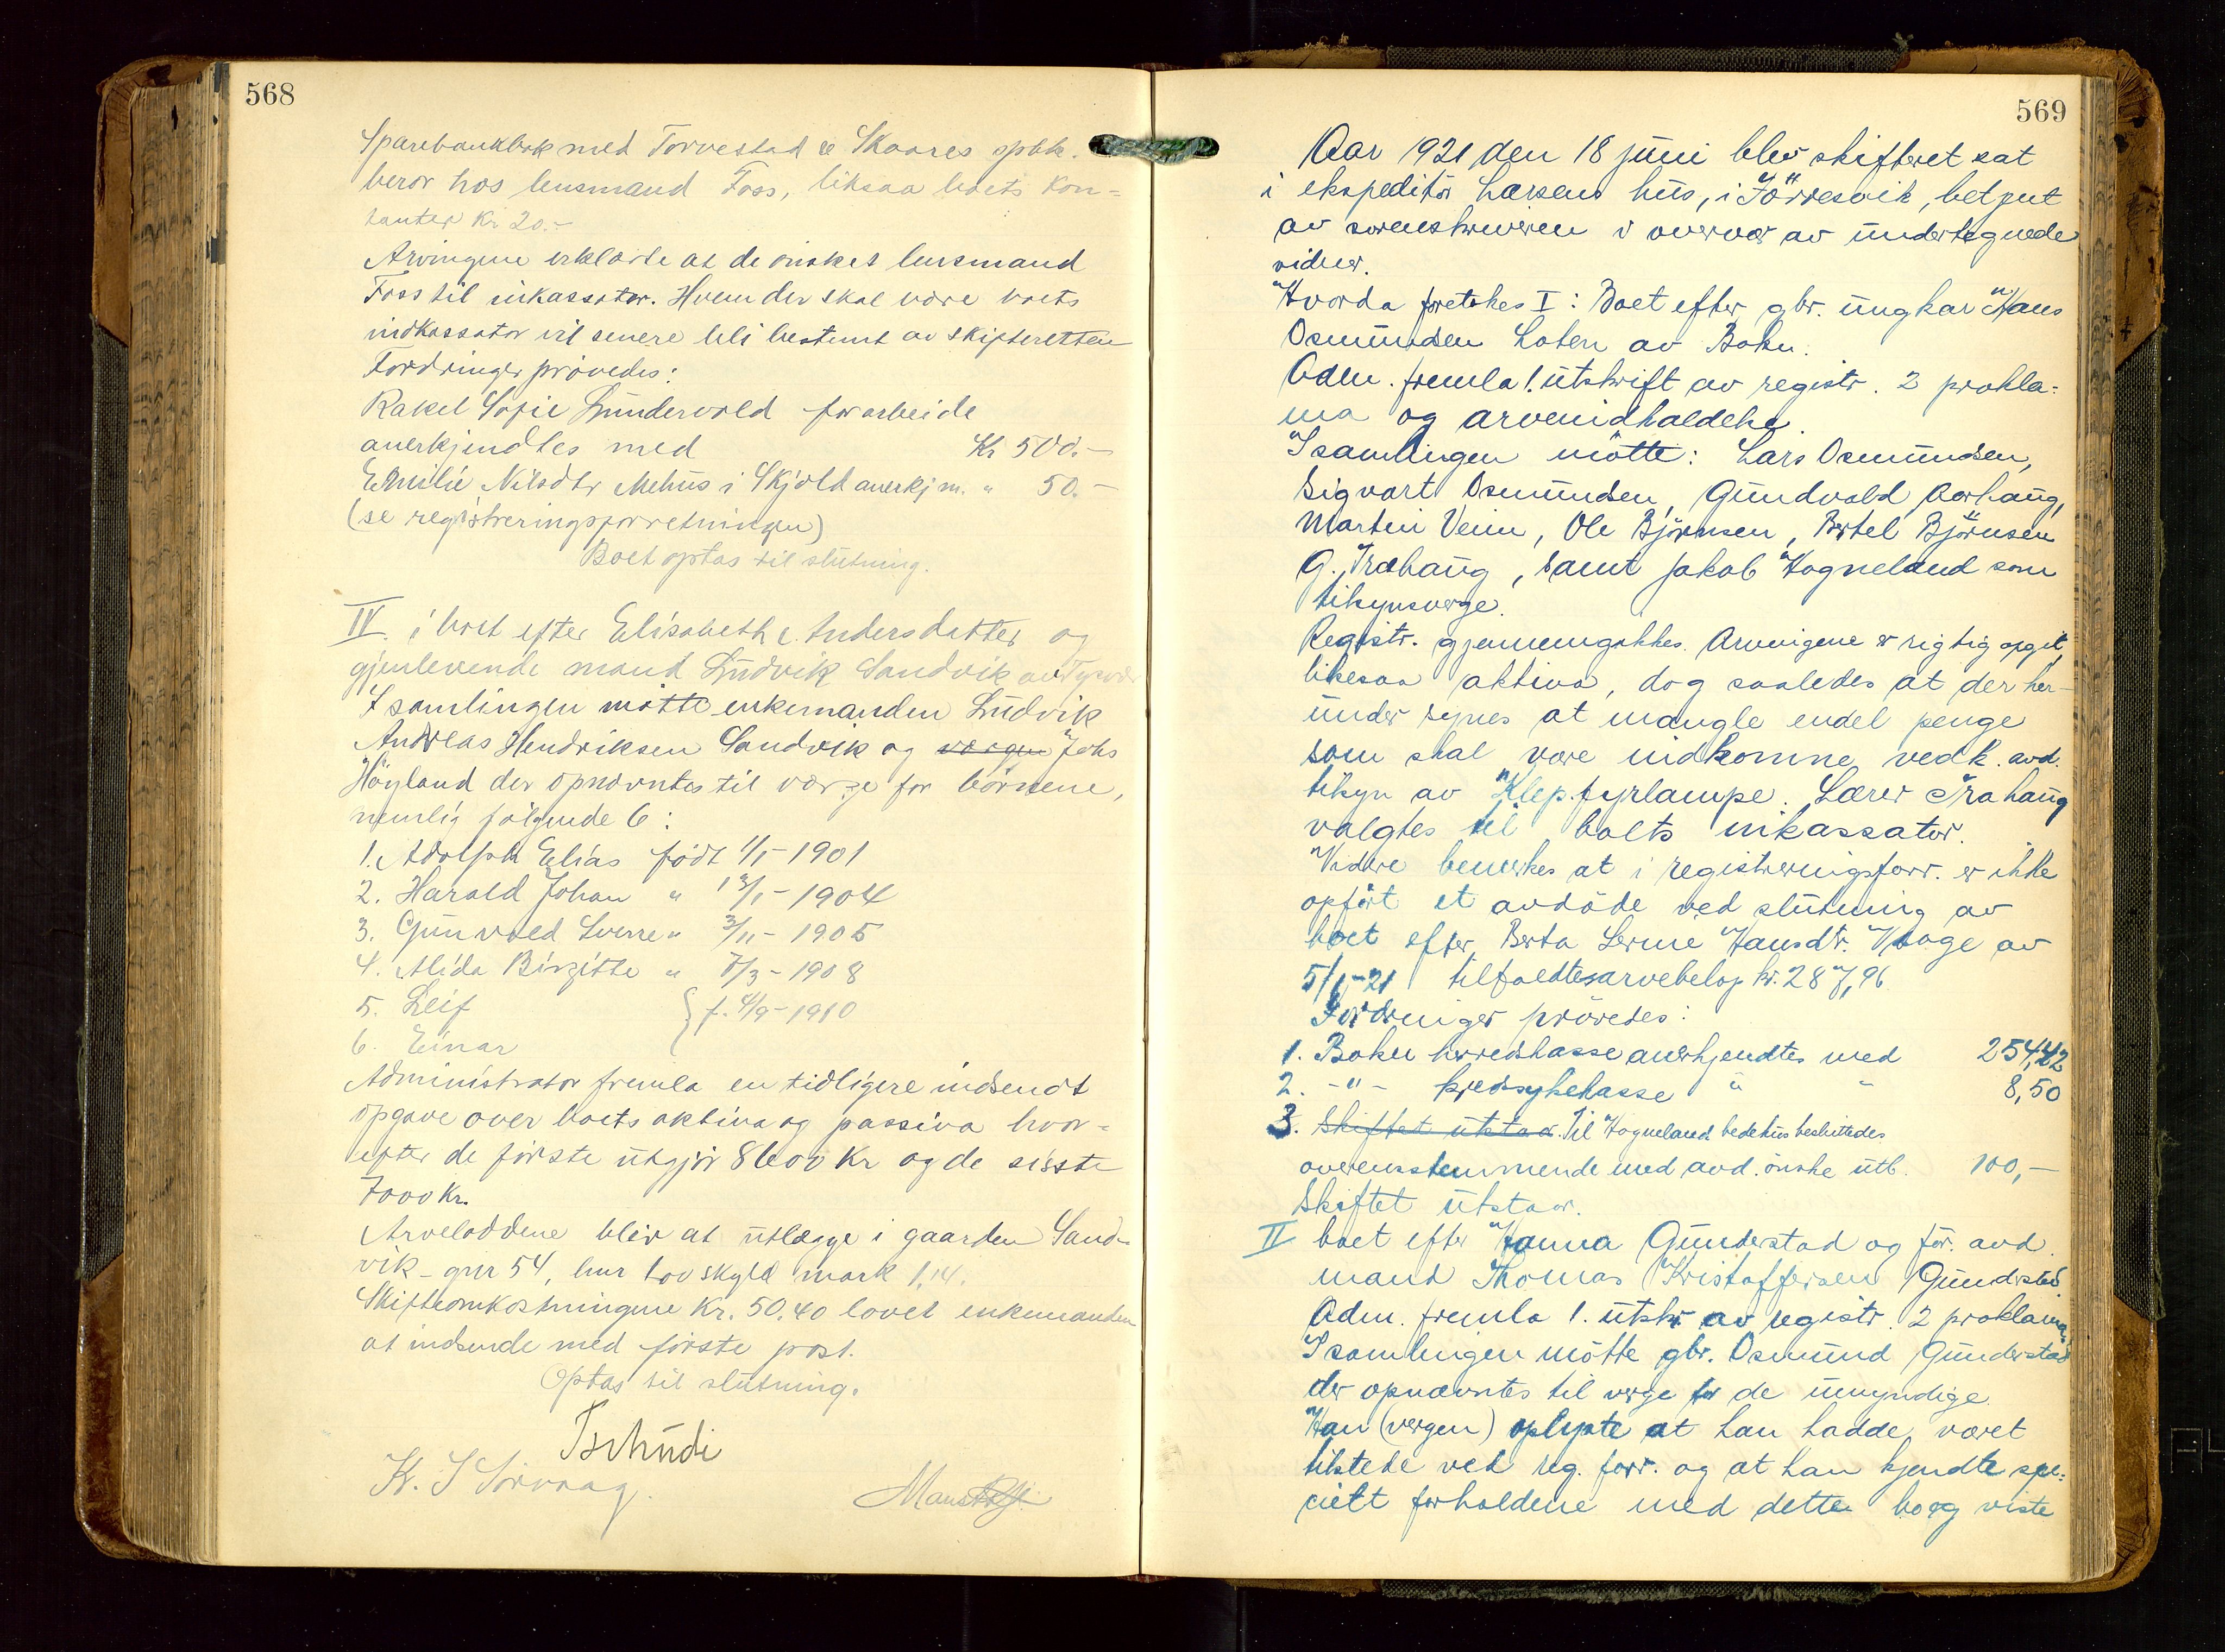 568
Sparebankbok med Torvestad & Skaares spbk.
beror hos lensmand Foss, liksaa boets kon-
tanter Kr 20.-
Arvingene erklærte at de ønsket lensmand
Foss til inkassator. Hvem der skal være boets
indkassator vil senere bli bestemt av skifteretten
Fordringer prøvedes:
Rakel Sofie Lundervold for arbeide
anerkjendtes med Kr 500.-
Emilie Nilsdtr Mehus i Skjold anerkj m. " 50.-
(se registreringsforretningen)
Boet optas til slutning.
IV. i boet efter Elisabeth Andersdatter og
gjenlevende mand Ludvik Sandvik av Tysvær
I samlingen møtte enkemanden Ludvik
Andreas Hendriksen Sandvik og vergen Johs
Høyland der opnævntes til værge for børnene,
nemlig følgende 6:
1. Adolph Elias født 1/1-1901
2. Harald Johan " 13/1-1904
3. Gunvald Sverre " 3/11-1905
4. Alida Birgitte " 7/3-1908
5. Leif
6. Einar } f. 4/9-1910
Administrator fremla en tidligere indsendt
opgave over boets aktiva og passiva hvor-
efter de første utgjør 8600 Kr og de sisste
7000 Kr.
Arveloddene blir at utlægge i gaarden Sand-
vik - gnr 54, bnr 1 av skyld mark 1,14.
Skifteomkostningene Kr. 50.40 lovet enkemanden
at indsende med første post.
Optas til slutning.
Tschudi
K. I Sørvaag.
569
Aar 1921 den 18 juni blev skifteret sat
i ekspeditør Larsens hus, i Førresvik, betjent
av sorenskriveren i overvær av undertegnede
vidner.
Hvorda foretokes I: Boet efter gbr. ungkar Hans
Osmundsen Loten av Bokn.
Adm. fremla 1. utskrift av registr. 2 prokla-
ma og arveindkaldelse.
I samlingen møtte: Lars Osmundsen,
Sigvart Osmundsen, Gundvald Aarhaug,
Martin Veim, Ole Bjørnsen, Bertel Bjørnsen
G. Træhaug, samt Jakob Hogneland som
tilsynsverge.
Registr. gjennemgikkes. Arvingene er rigtig opgit,
likesaa aktiva, dog saaledes at der her-
under synes at mangle endel penge
som skal være indkomne ved k. avd.
tilsyn av Klep. fyrlampe. Lærer Træhaug
valgtes til boets inkassator.
Videre bemerkes at i registreringsforr. er ikke
opført et avdøde ved slutning av
boet efter Berta Serine Hansdtr. Vaage av
5/1-21 tilfaldtes arvebeløp kr. 287,96
Fordringer prøvedes:
1. Bokn herredskasse anerkjendtes med 254,42
2. -"- kredssykekasse " " 8,50
3. Skiftet utstaar. Til Hogneland bedehus besluttedes
overensstemmende med avd. ønske utb. 100,-
Skiftet utstaar.
II boet efter Hanna Gunderstad og før. avd.
mand Thomas Kristoffersen Gunderstad.
Adm. fremla 1. utskr av registr. 2 proklama.
I samlingen møtte gbr. Osmund Gunderstad
der opnævntes til verge for de umyndige.
Han (vergen) oplyste at han hadde været
tilstede ved reg. forr. og at han kjendte spe-
cielt forholdene med dette bo og viste